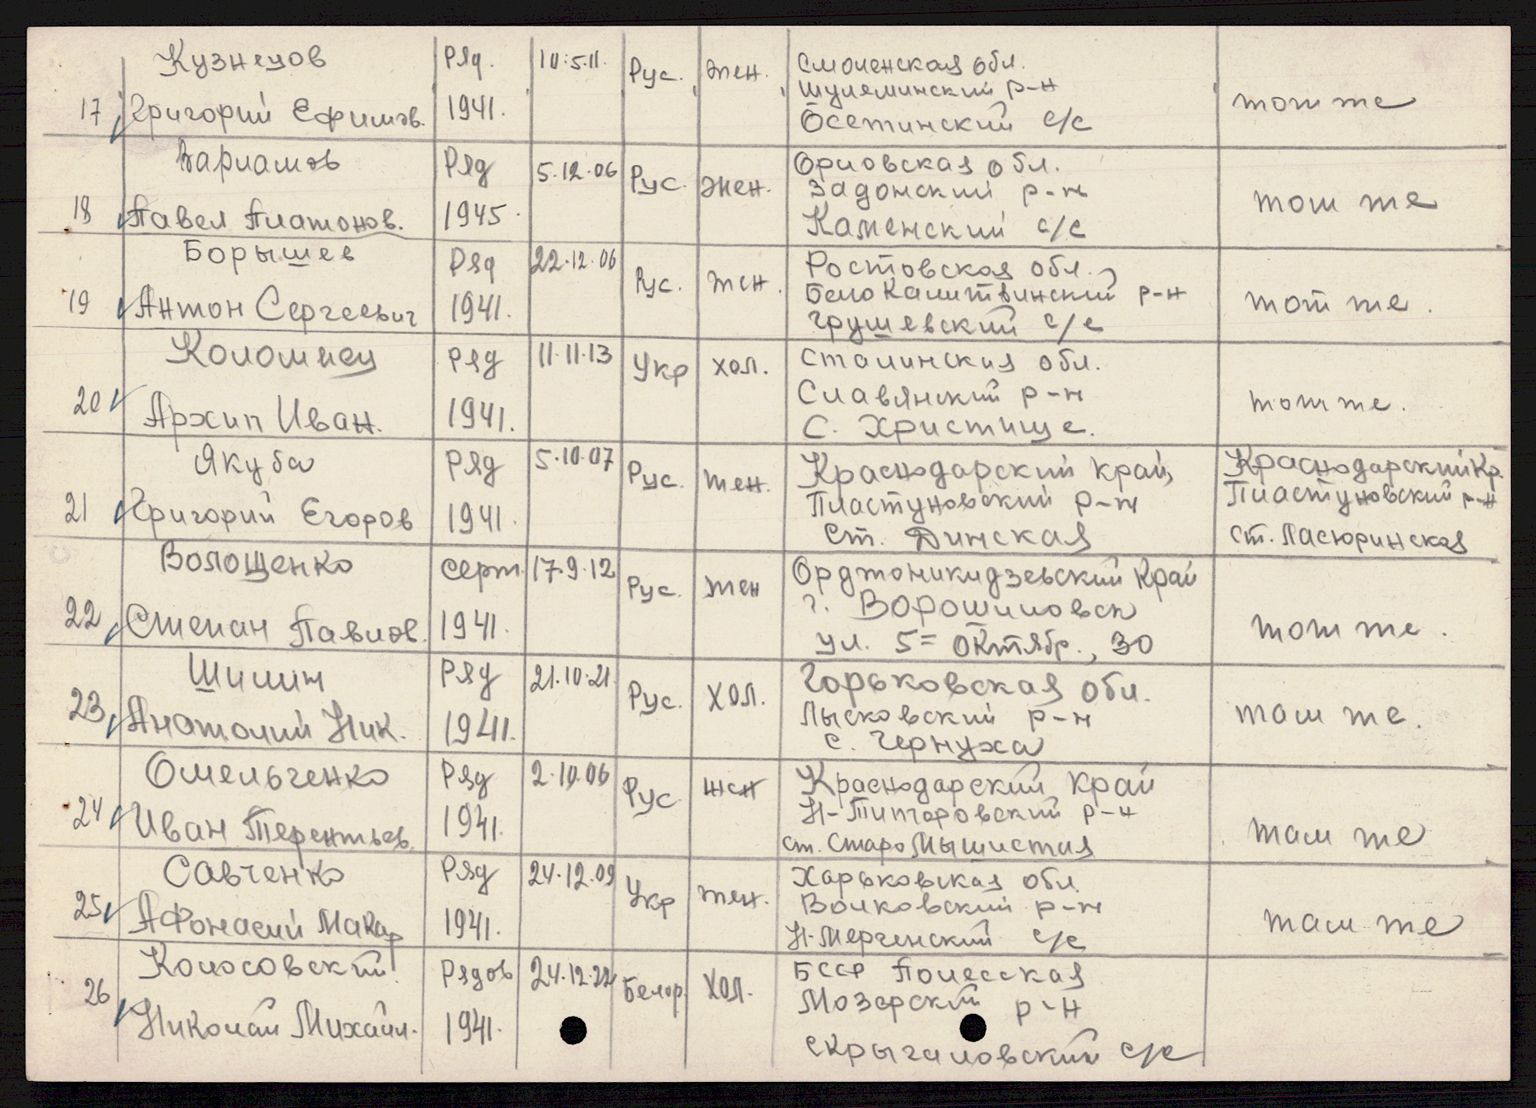 Кузнецов Ряд. 10.5.11. Рус. жен. Смоленская обл.
Шулеминский р-н
17 Григорий Ефимов. 1941. Осетинский с/с тот же
Варлашов Ряд 5.12.06 Рус. жен. Орловская обл.
Задонский р-н
18 Павел Платонов. 1945. Каменский с/с тот же
Борышев Ряд 22.12.06 Рус. жен. Ростовская обл.
БелоКалитвинский р-н
19 Антон Сергеевич 1941. Грушевский с/с тот же.
Коломиец Ряд 11.11.13 Укр хол. Сталинская обл.
Славянский р-н
20 Архип Иван. 1941. С. Христище. тот же.
Якуба Ряд 5.10.07 Рус. жен. Краснодарский край, Краснодарский Кр.
Пластуновский р-н Пластуновский р-н
21 Григорий Егоров 1941. ст. Динская ст. Пасюринская
Волощенко серж. 17.9.12 Рус. жен Орджоникидзевский край
г. Ворошиловск
22 Степан Павлов. 1941. ул. 5= Октябр., 30 тот же.
Шилин Ряд 21.10.21. Рус. хол. Горьковская обл.
Лысковский р-н
23 Анатолий Ник. 1941. с. Чернуха там же.
Омельченко Ряд 2.10.06 Рус. жен Краснодарский край
Н-Титоровский р-н
24 Иван Терентьев. 1941. ст. СтароМышистая там же
Савченко Ряд 24.12.09 Укр жен. Харьковская обл.
Волковский р-н
25 Афонасий Макар 1941. Н-Мерченский с/с там же
Колосовский Рядов 24.12.22 Белор. хол. БССР Полесская
Мозерский р-н
26 Николай Михайл. 1941. скрыгаловский с/с